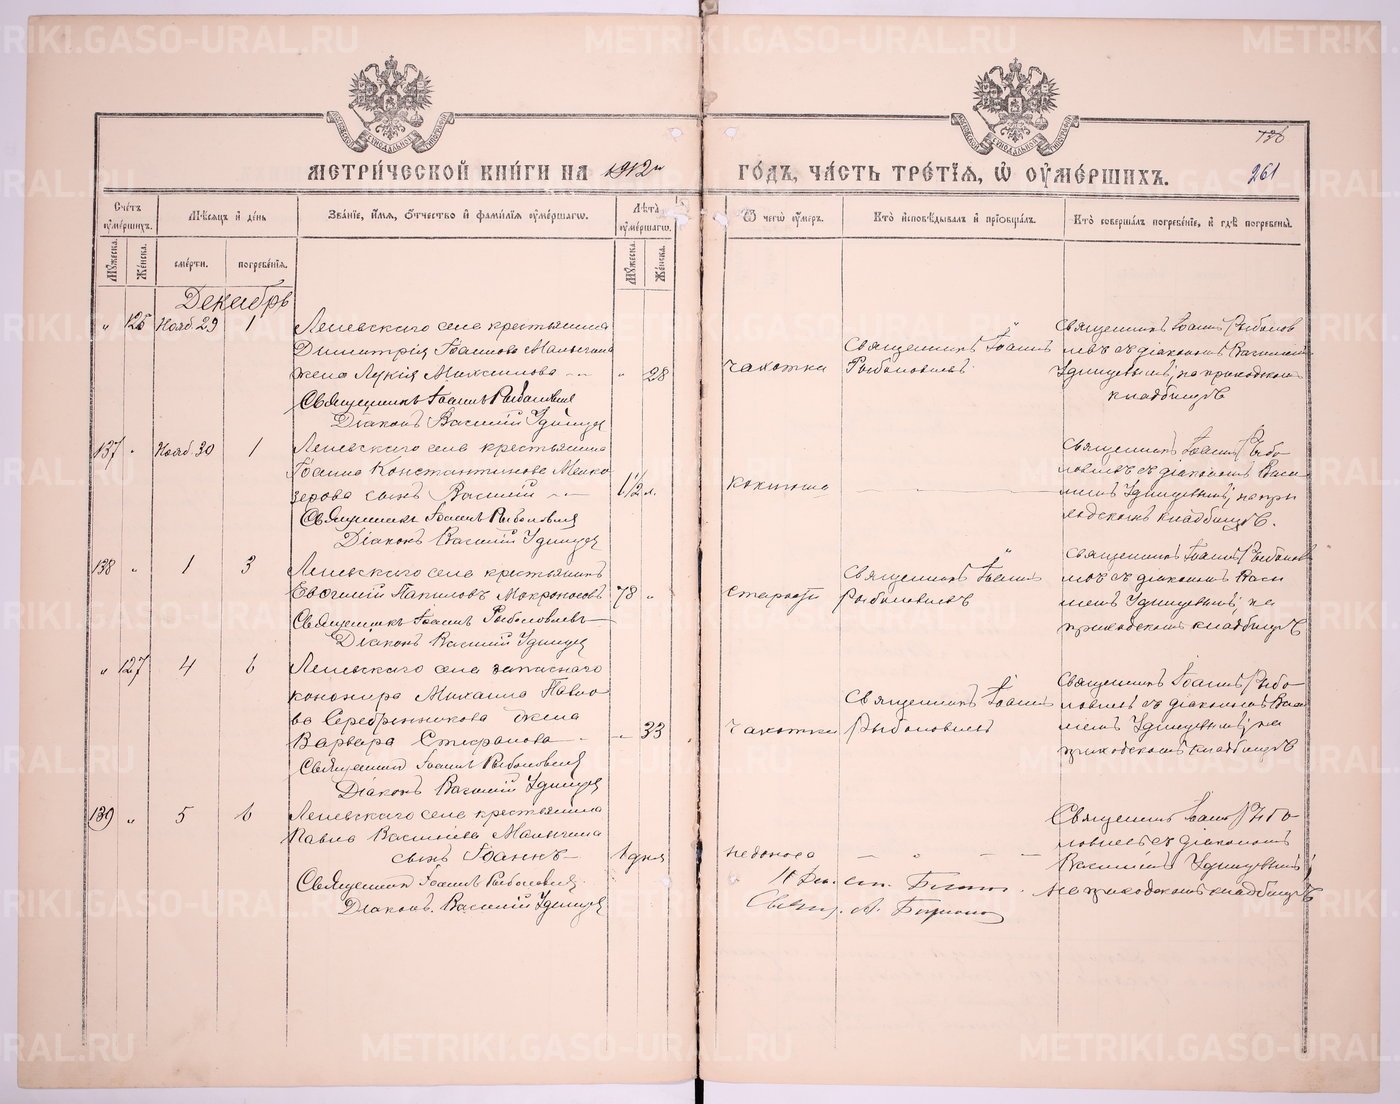 METRIKI.GASO-URAL.RU
136
МЕТРИ́ЧЕСКОЙ КНИ́ГИ НА 1912й ГО́ДЪ, ЧА́СТЬ ТРЕ́ТІЯ, Ѡ ОУМЕ́РШИХЪ.
261
Счетъ оумершихъ.
Мѣсяцъ и день
Званіе, имя, отчество и фамилія оумершагѡ.
Лѣта оумершагѡ.
Ѿ чегѡ оумеръ.
Кто исповѣдывалъ и пріобщалъ.
Кто совершалъ погребеніе, и гдѣ погребены.
Мужеска.
Женска.
смерти.
погребенія.
Мужеска.
Женска.
Декабрь
" 125 Нояб 29 1
Лепевскаго села крестьянина
Димитрія Іоаннова Малыгина
жена Лукія Михаилова - - " 28
Священникъ Іоаннъ Рыболовлевъ
Діаконъ Василій Удинцев
чахотки
Священникъ Іоаннъ
Рыболовлевъ
Священникъ Іоаннъ Рыболов
левъ съ діакономъ Василіемъ
Удинцевымъ, на приходскомъ
кладбищѣ
137 " Нояб 30 1
Лепевскаго села крестьянина
Іоанна Константинова Мелко
зерова сынъ Василій - - 1½ л.
Священникъ Іоаннъ Рыболовлев
Діаконъ Василій Удинцев
коклюша
Священникъ Іоаннъ Рыбо
ловлевъ съ діакономъ Васи
ліемъ Удинцевымъ, на при
ходскомъ кладбищѣ.
138 " 1 3
Лепевскаго села крестьянинъ
Евгеній Мокроносовъ 78 "
Священникъ Іоаннъ Рыболовлевъ
Діаконъ Василій Удинцев
старости
Священникъ Іоаннъ
Рыболовлевъ
Священникъ Іоаннъ Рыболов
левъ съ діакономъ Васи
ліемъ Удинцевымъ, на
приходскомъ кладбищѣ
" 127 4 6
Лепевскаго села запаснаго
канонира Михаила Павло
ва Серебренникова жена
Варвара Стефанова - " 33
Священникъ Іоаннъ Рыболовлев
Діаконъ Василій Удинцев
чахотки
Священникъ Іоаннъ
Рыболовлевъ
Священникъ Іоаннъ Рыбо
ловлевъ съ діакономъ Васи
ліемъ Удинцевымъ, на
приходскомъ кладбищѣ
139 " 5 6
Лепевскаго села крестьянина
Павла Василіева Малыгина
сынъ Іоаннъ - 1 дня
Священникъ Іоаннъ Рыболовлев.
Діаконъ Василій Удинцев
недоноса
Священникъ Іоаннъ Рыбо
ловлевъ съ діакономъ
Василіемъ Удинцевымъ,
на приходскомъ кладбищѣ